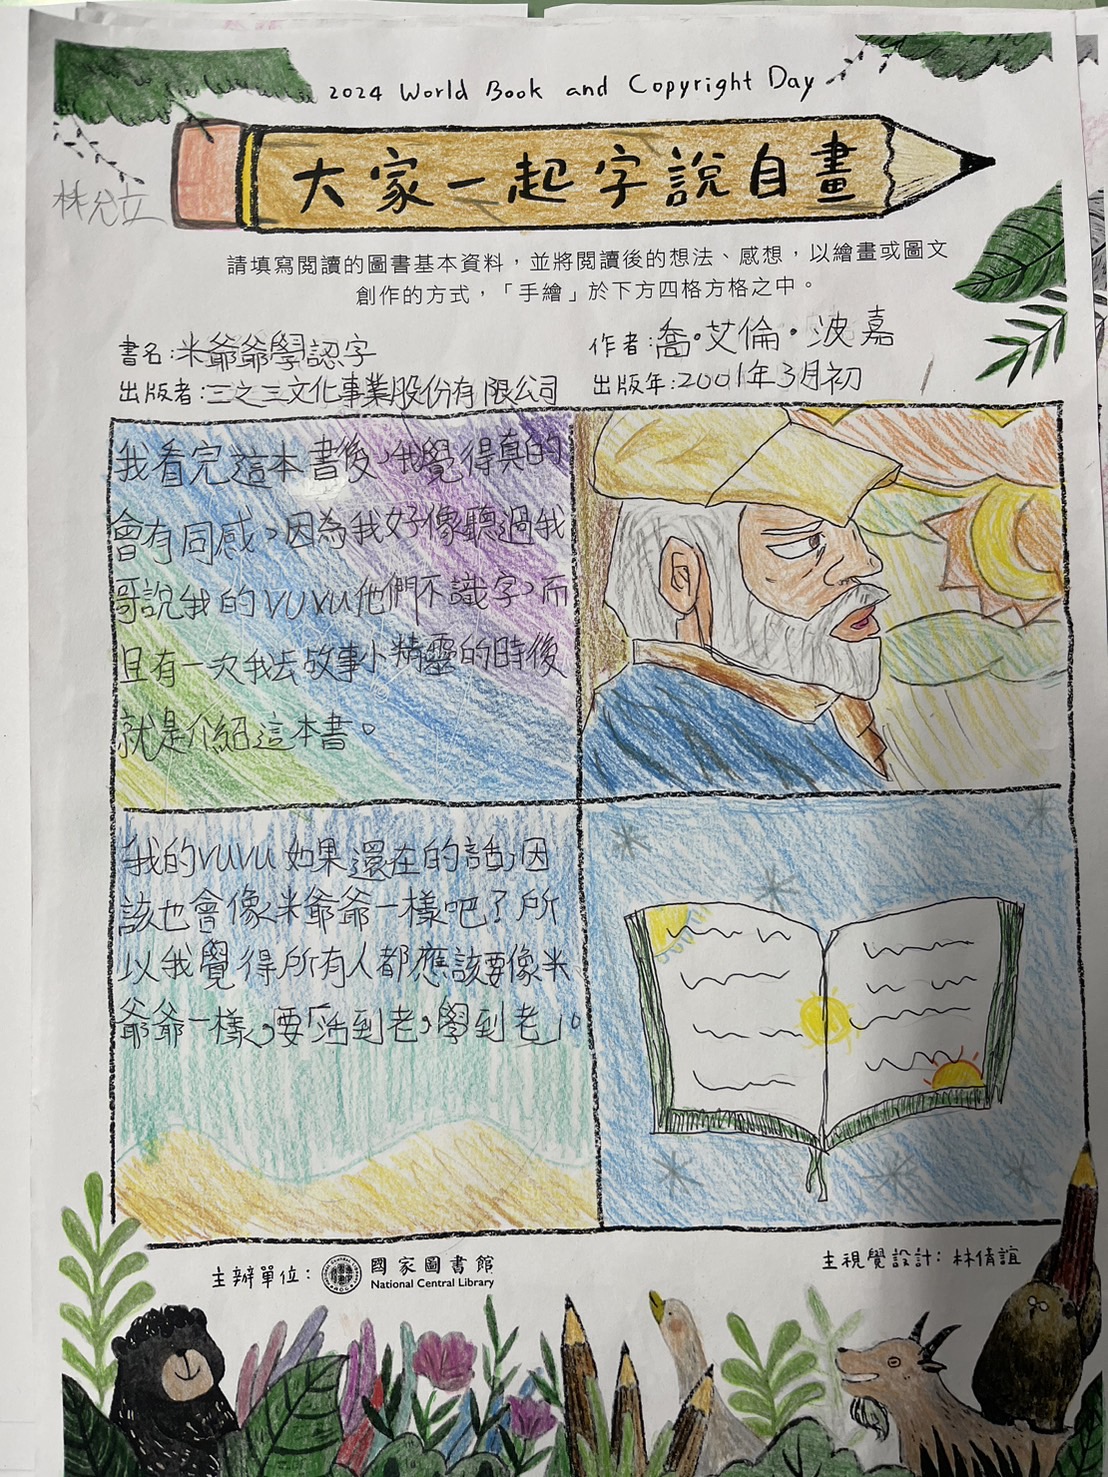 2024 World Book and Copyright Day
大家一起字說自畫
林允立
請填寫閱讀的圖書基本資料，並將閱讀後的想法、感想，以繪畫或圖文
創作的方式，「手繪」於下方四格方格之中。
書名:米爺爺學認字
作者:喬·艾倫·波嘉
出版者:三之三文化事業股份有限公司
出版年:2001年3月初
我看完這本書後，我覺得真的
會有同感，因為我好像聽過我
哥說我的vuvu他們不識字，而
且有一次我去故事小精靈的時後
就是介紹這本書。
我的vuvu如果還在的話，因
該也會像米爺爺一樣吧？所
以我覺得所有人都應該要像米
爺爺一樣，要「活到老，學到老」。
主辦單位：
國家圖書館
National Central Library
主視覺設計：林倩誼